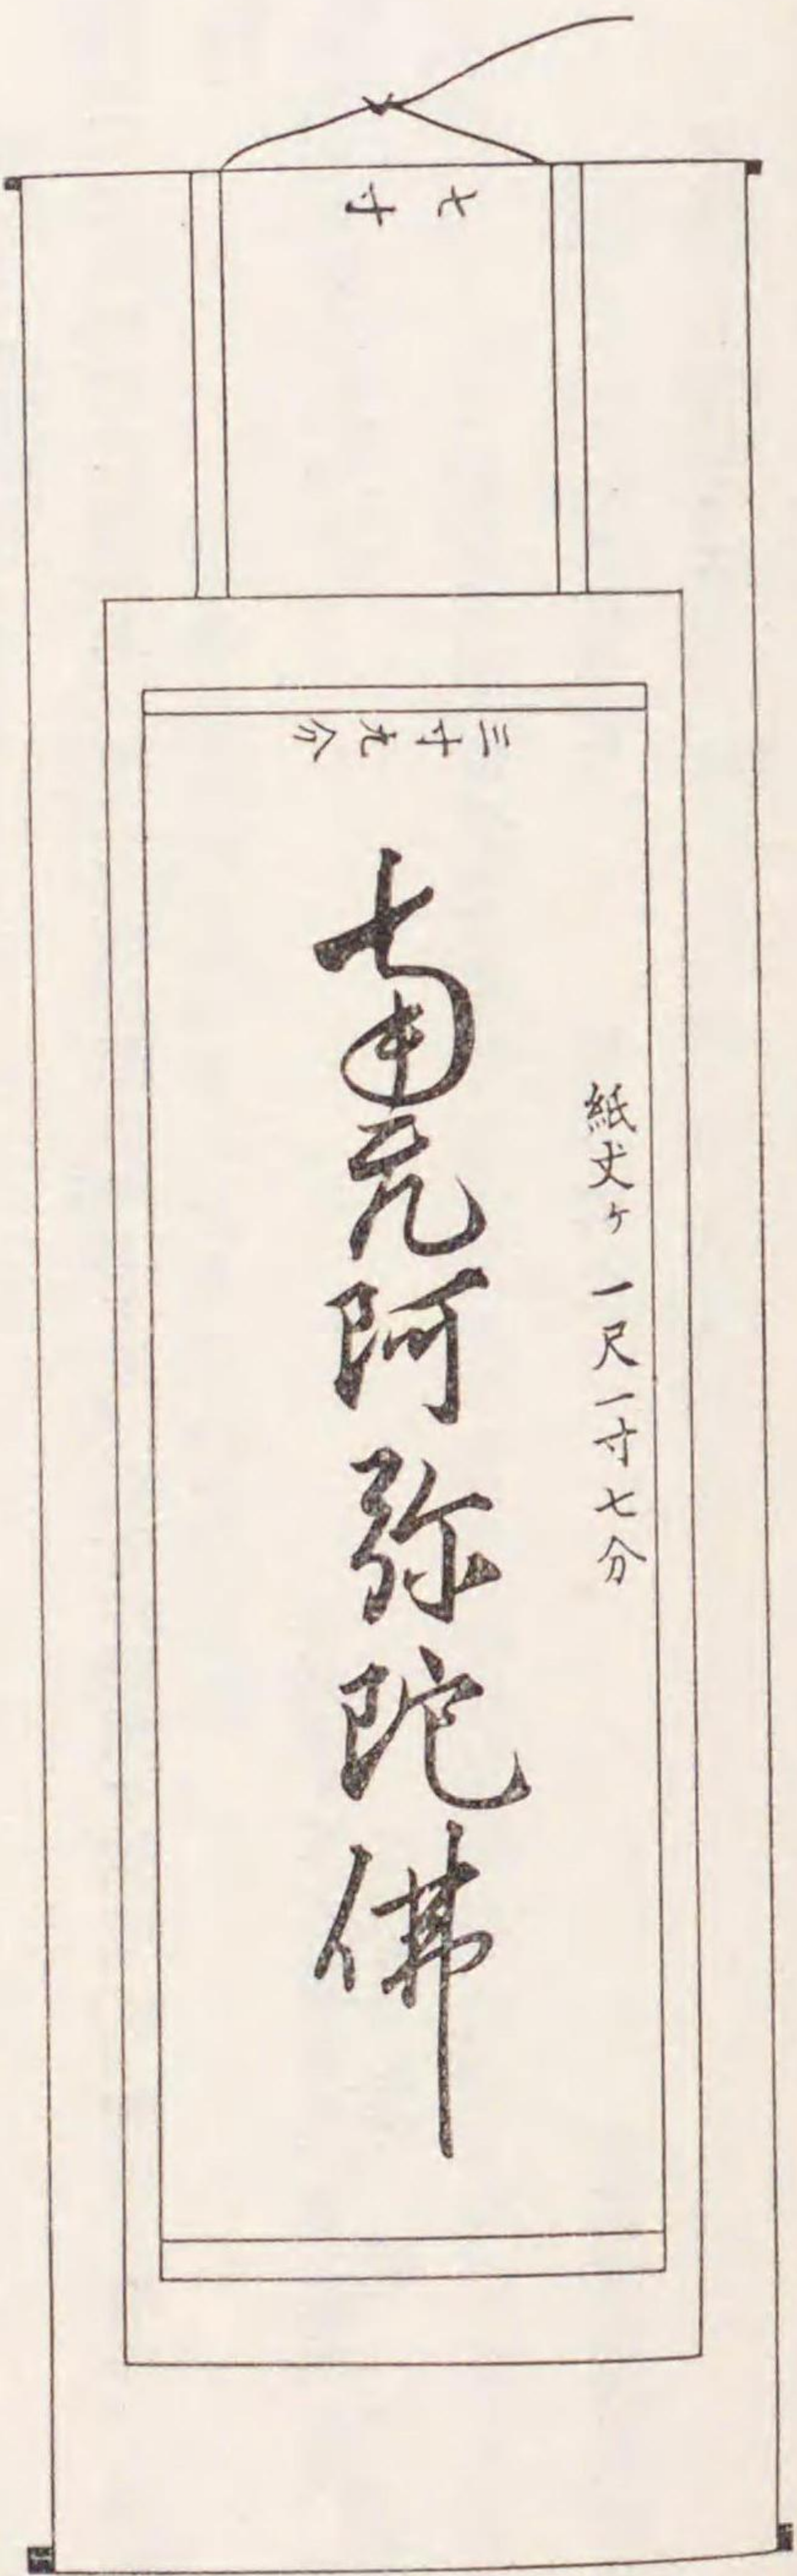 七寸
三寸九分
紙丈ヶ 一尺一寸七分
南无阿弥陀佛